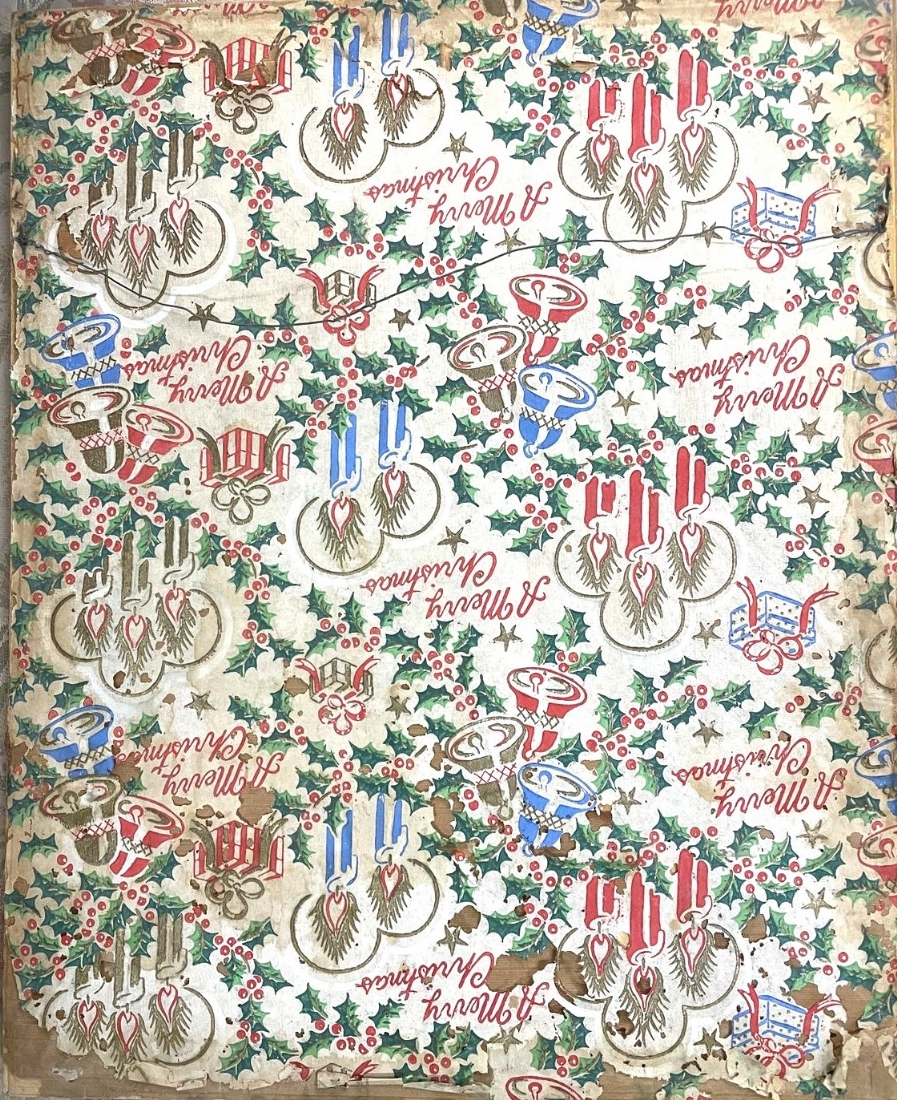 A Merry
A Merry
Christmas
A Merry
Christmas
A Merry
Christmas
A Merry
Christmas
A Merry
Christmas
A Merry
Christmas
A Merry
Christmas